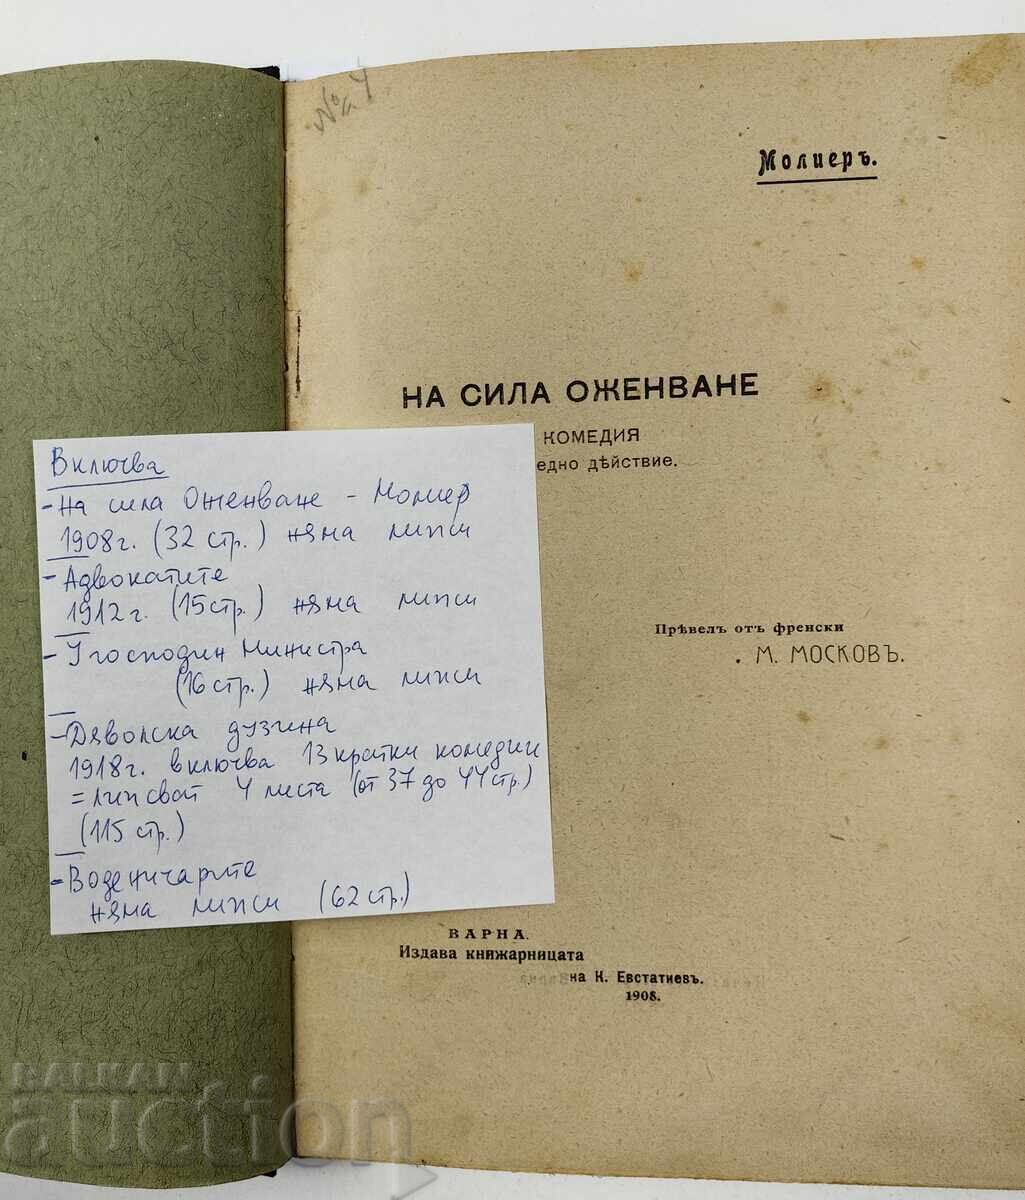 № 4
Молиеръ.
НА СИЛА ОЖЕНВАНЕ
КОМЕДИЯ
едно дѣйствие.
Прѣвелъ отъ френски
М. МОСКОВЪ.
ВАРНА.
Издава книжарницата
на К. Евстатиевъ.
1908.
Включва
- На сила Оженване - Молиер
1908г. (32 стр.) няма липси
- Адвокатите
1912г. (15стр.) няма липси
- У господин Министра
(16 стр.) няма липси
- Дяволска дузина
1918г. включва 13 кратки комедии
= липсват 4 листа (от 37 до 44 стр.)
(115 стр.)
- Воденичарите
няма липси (62 стр.)
BALKAN
auction